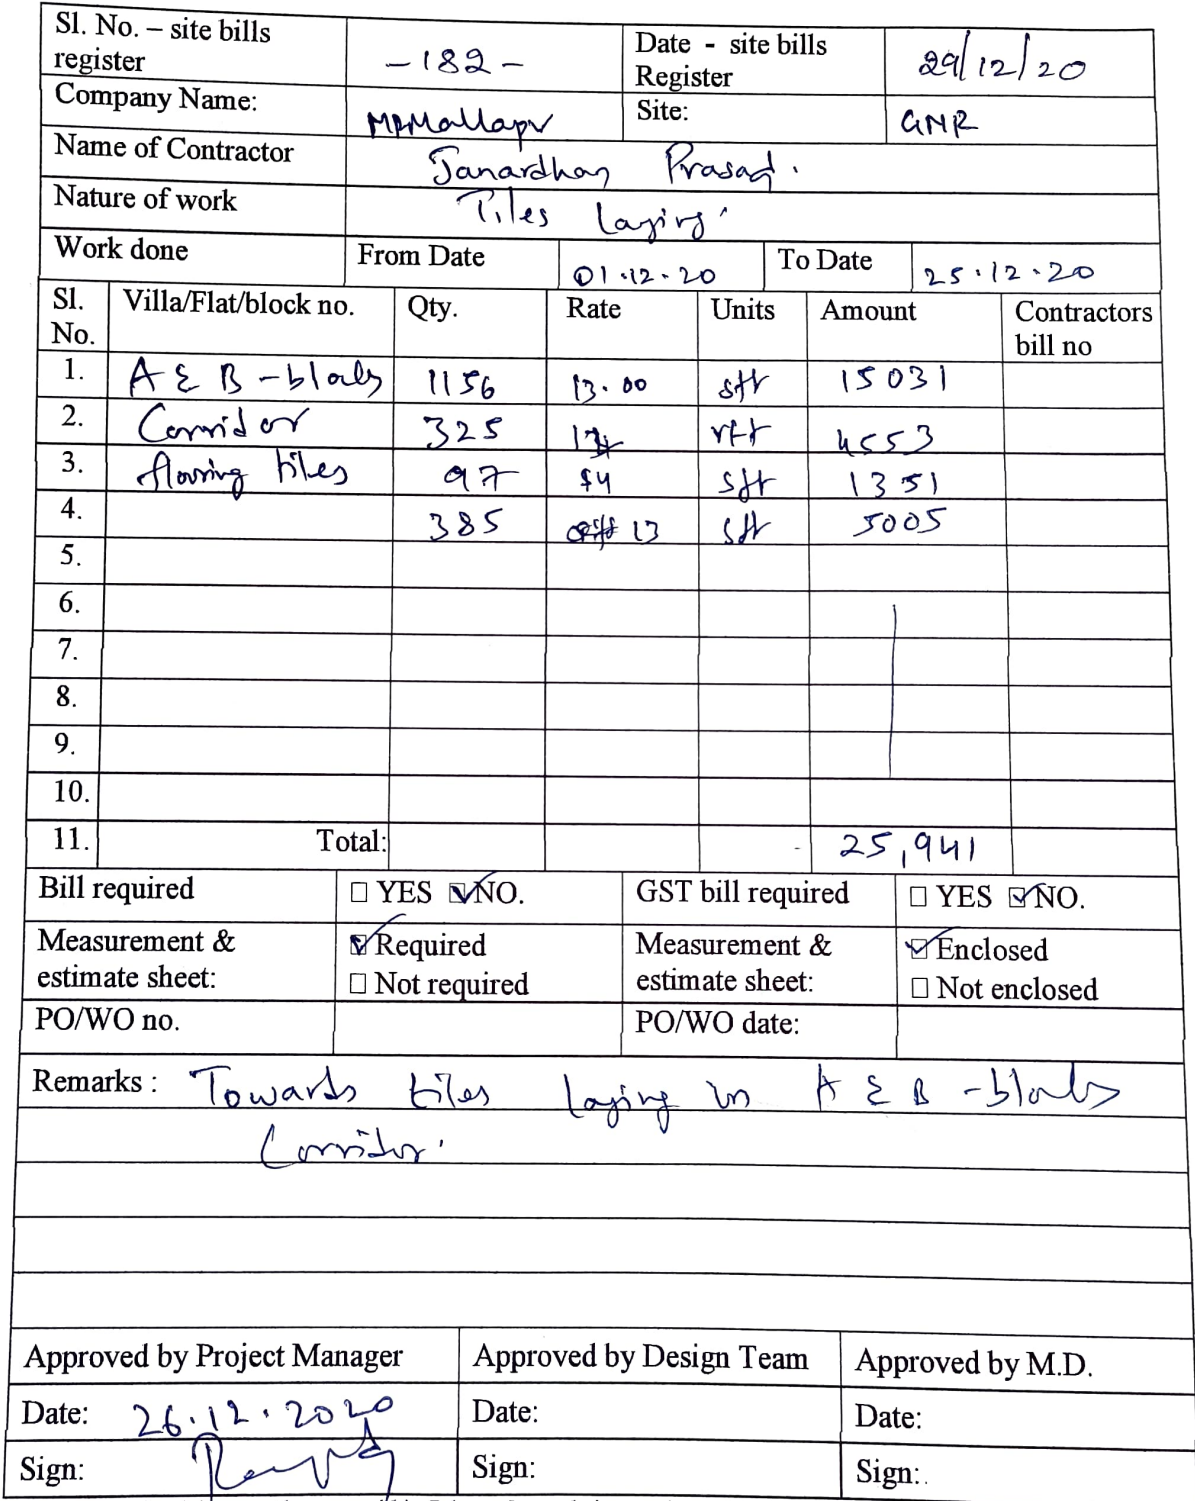 Sl. No. – site bills register -182- Date - site bills Register 29/12/20
Company Name: MPMallapr Site: GMR
Name of Contractor Janardhan Prasad.
Nature of work Tiles laying
Work done From Date 01.12.20 To Date 25.12.20
Sl. No. Villa/Flat/block no. Qty. Rate Units Amount Contractors bill no
1. A & B - blocks 1156 13.00 sft 15031
2. Corridor 325 rft 4553
3. flooring tiles 97 sft 1351
4. 385 13 sft 5005
5.
6.
7.
8.
9.
10.
11. Total: 25,941
Bill required ☐ YES ☑ NO. GST bill required ☐ YES ☑ NO.
Measurement & estimate sheet: ☑ Required ☐ Not required Measurement & estimate sheet: ☑ Enclosed ☐ Not enclosed
PO/WO no. PO/WO date:
Remarks : Towards tiles laying in A & B - blocks
Corridor.
Approved by Project Manager Approved by Design Team Approved by M.D.
Date: 26.12.2020 Date: Date:
Sign: Sign: Sign: